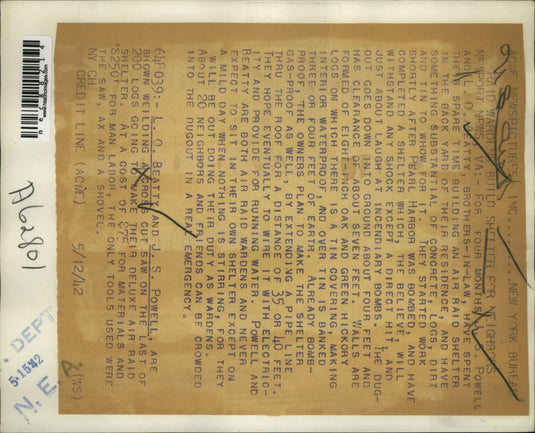 ACME NEWSPICTURES, INC..........NEW YORK BUREAU
AIR RAID WARDENS BUILD SHELTER FOR NEIGHBORS
NEWPORT NEWS, VA.--FOR FOUR MONTHS POWELL
AND L. O. BEATTY, BROTHERS-IN-LAW, HAVE SPENT
THEIR SPARE TIME BUILDING AN AIR RAID SHELTER
IN THE BACK YARD OF THEIR RESIDENCE, AND HAVE
SOMETHING SUBSTANTIAL OF CONCRETE, LOGS, DIRT
AND TIN TO SHOW FOR IT. THEY STARTED WORK
SHORTLY AFTER PEARL HARBOR WAS BOMBED, AND HAVE
COMPLETED A SHELTER WHICH, THEY BELIEVE WILL
WITHSTAND ANY SHOCK EXCEPT A DIRECT HIT, AND
JUST ABOUT ANY SIZED AIR BOMBS. THE DUG-
OUT GOES DOWN INTO GROUND ABOUT FOUR FEET AND
HAS CLEARANCE OF ABOUT SEVEN FEET. WALLS ARE
FORMED OF EIGHT-INCH OAK AND GREEN HICKORY
LOGS ON WHICH THERE IS A TIN COVERING, MAKING
INTERIOR WATERPROOF, AND OVER THIS IS BANKED
THREE OR FOUR FEET OF EARTH. ALREADY BOMB-
PROOF, THE OWNERS PLAN TO MAKE THE SHELTER
GAS-PROOF AS WELL, BY EXTENDING A PIPE LINE
THRU THE DOOR FOR A DISTANCE OF 35 OR 40 FEET.
THEY HOPE EVENTUALLY TO WIRE IT WITH ELECTRIC-
ITY AND PROVIDE FOR RUNNING WATER. POWELL AND
BEATTY ARE BOTH AIR RAID WARDENS AND NEVER
EXPECT TO SIT IN THEIR OWN SHELTER EXCEPT ON
A MILD DAY WHEN NOTHING IS STIRRING, FOR THEY
WILL BE DOING THEIR DUTY AS RAID WARDENS.
ABOUT 20 NEIGHBORS AND FRIENDS CAN BE CROWDED
INTO THE DUGOUT IN A REAL EMERGENCY.
648039: L. O. BEATTY AND J. S. POWELL, ARE
SHOWN WEILDING A CROSS CUT SAW ON THE LAST OF
200 LOGS GOING TO MAKE THEIR DELUXE AIR RAID
SHELTER. AT A COST OF $75 FOR MATERIALS AND
"$250" FOR MAN LABOR, THE ONLY TOOLS USED WERE
THE SAW, AX AND A SHOVEL.
NY CH
CREDIT LINE (ACME) 5/12/42
(WS)
A62801
DEPT.
5-15-42
N. E. A.